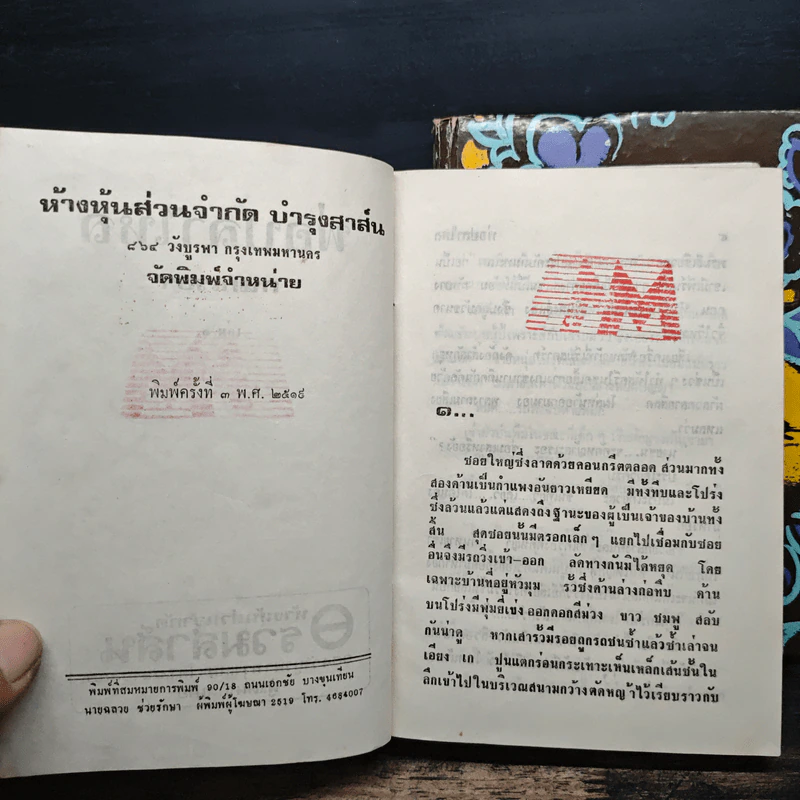 ห้างหุ้นส่วนจำกัด บำรุงสาส์น
๘๖๔ วังบูรพา กรุงเทพมหานคร
จัดพิมพ์จำหน่าย
พิมพ์ครั้งที่ ๓ พ.ศ. ๒๕๑๙
พิมพ์ที่สมหมายการพิมพ์ 90/18 ถนนเอกชัย บางขุนเทียน
นายฉลวย ช่วยรักษา ผู้พิมพ์ผู้โฆษณา 2519 โทร. 4684007
๑...
ซอยใหญ่ซึ่งลาดด้วยคอนกรีตตลอด ส่วนมากทั้ง
สองด้านเป็นกำแพงอันยาวเหยียด มีทั้งทึบและโปร่ง
ซึ่งล้วนแล้วแต่แสดงถึงฐานะของผู้เป็นเจ้าของบ้านทั้ง
สิ้น สุดซอยนั้นมีตรอกเล็ก ๆ แยกไปเชื่อมกับซอย
อื่นจึงมีรถวิ่งเข้า-ออก ลัดทางกันมิได้หยุด โดย
เฉพาะบ้านที่อยู่หัวมุม รั้วซึ่งด้านล่างก่อทึบ ด้าน
บนโปร่งมีพุ่มยี่เข่ง ออกดอกสีม่วง ขาว ชมพู สลับ
กันน่าดู หากเสารั้วมีรอยถูกรถชนซ้ำแล้วซ้ำเล่าจน
เอียง เก ปูนแตกร่อนกระเทาะเห็นเหล็กเส้นชั้นใน
ลึกเข้าไปในบริเวณสนามกว้างตัดหญ้าไว้เรียบราวกับ